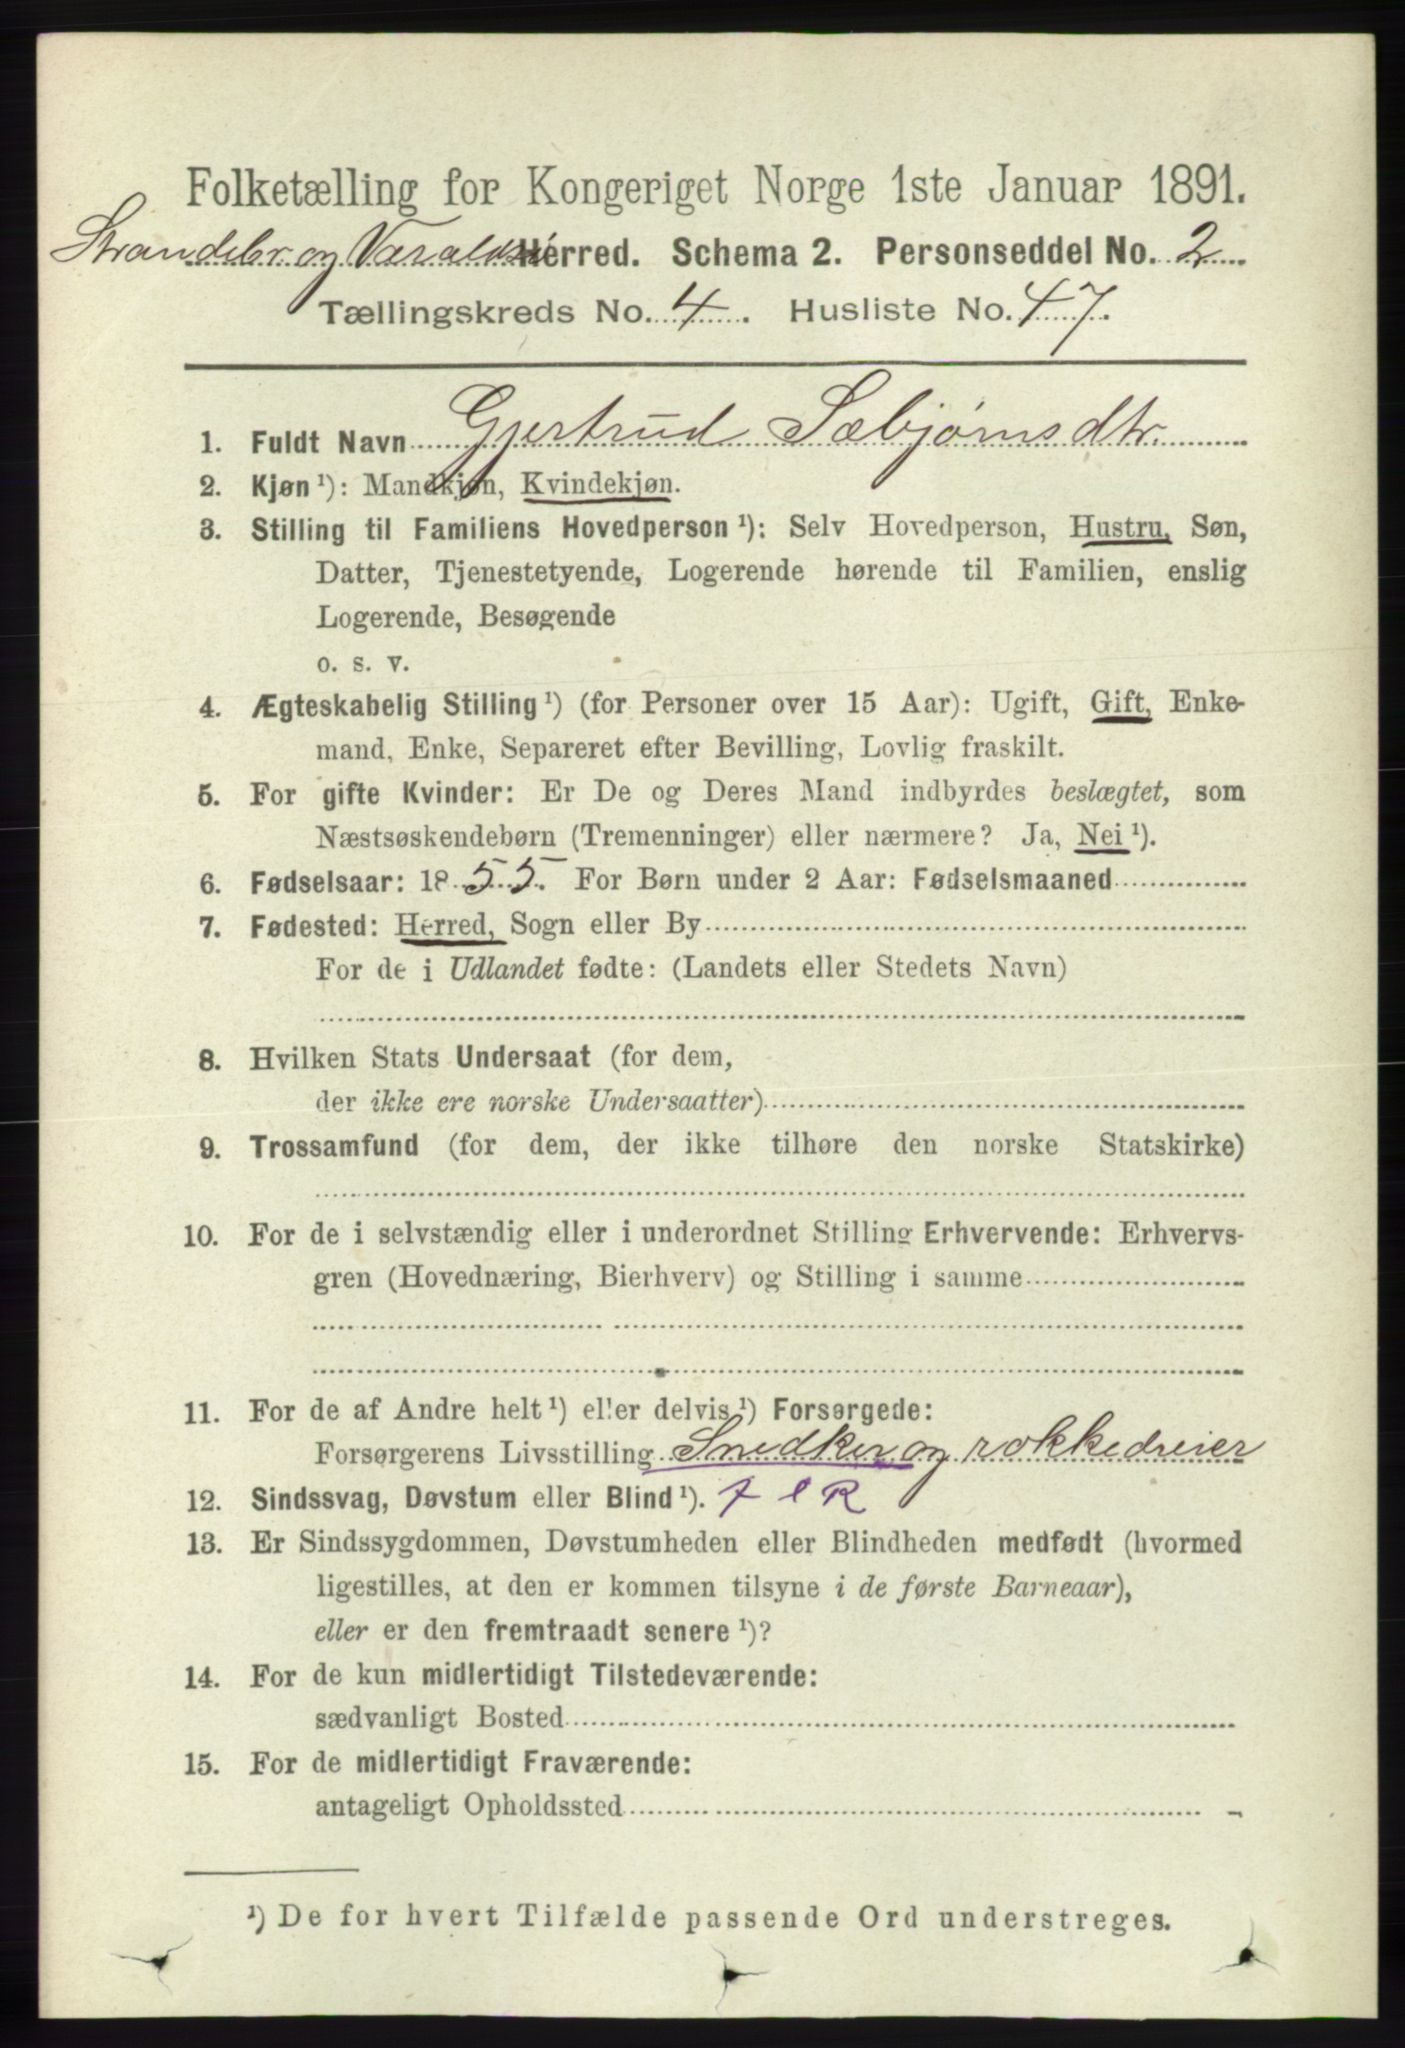 Folketælling for Kongeriget Norge 1ste Januar 1891.
Strandebr og Varaldsø Herred. Schema 2. Personseddel No. 2
Tællingskreds No. 4. Husliste No. 47.
1. Fuldt Navn Gjertrud Sæbjørnsdtr.
2. Kjøn ¹): Mandkjøn, Kvindekjøn.
3. Stilling til Familiens Hovedperson ¹): Selv Hovedperson, Hustru, Søn,
Datter, Tjenestetyende, Logerende hørende til Familien, enslig
Logerende, Besøgende
o. s. v.
4. Ægteskabelig Stilling ¹) (for Personer over 15 Aar): Ugift, Gift, Enke-
mand, Enke, Separeret efter Bevilling, Lovlig fraskilt.
5. For gifte Kvinder: Er De og Deres Mand indbyrdes beslægtet, som
Næstsøskendebørn (Tremenninger) eller nærmere? Ja, Nei ¹).
6. Fødselsaar: 1855. For Børn under 2 Aar: Fødselsmaaned
7. Fødested: Herred, Sogn eller By
For de i Udlandet fødte: (Landets eller Stedets Navn)
8. Hvilken Stats Undersaat (for dem,
der ikke ere norske Undersaatter)
9. Trossamfund (for dem, der ikke tilhøre den norske Statskirke)
10. For de i selvstændig eller i underordnet Stilling Erhvervende: Erhvervs-
gren (Hovednæring, Bierhverv) og Stilling i samme
11. For de af Andre helt ¹) eller delvis ¹) Forsørgede:
Forsørgerens Livsstilling Snedker og rokkedreier
12. Sindssvag, Døvstum eller Blind ¹). f l R
13. Er Sindssygdommen, Døvstumheden eller Blindheden medfødt (hvormed
ligestilles, at den er kommen tilsyne i de første Barneaar),
eller er den fremtraadt senere ¹)?
14. For de kun midlertidigt Tilstedeværende:
sædvanligt Bosted
15. For de midlertidigt Fraværende:
antageligt Opholdssted
¹) De for hvert Tilfælde passende Ord understreges.